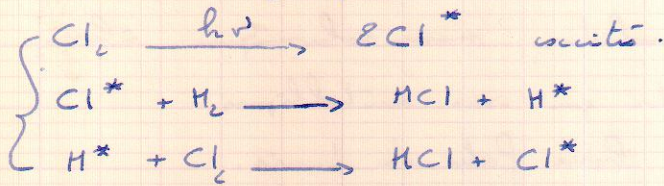 Cl₂ —hν→ 2Cl* excités.
Cl* + H₂ → HCl + H*
H* + Cl₂ → HCl + Cl*